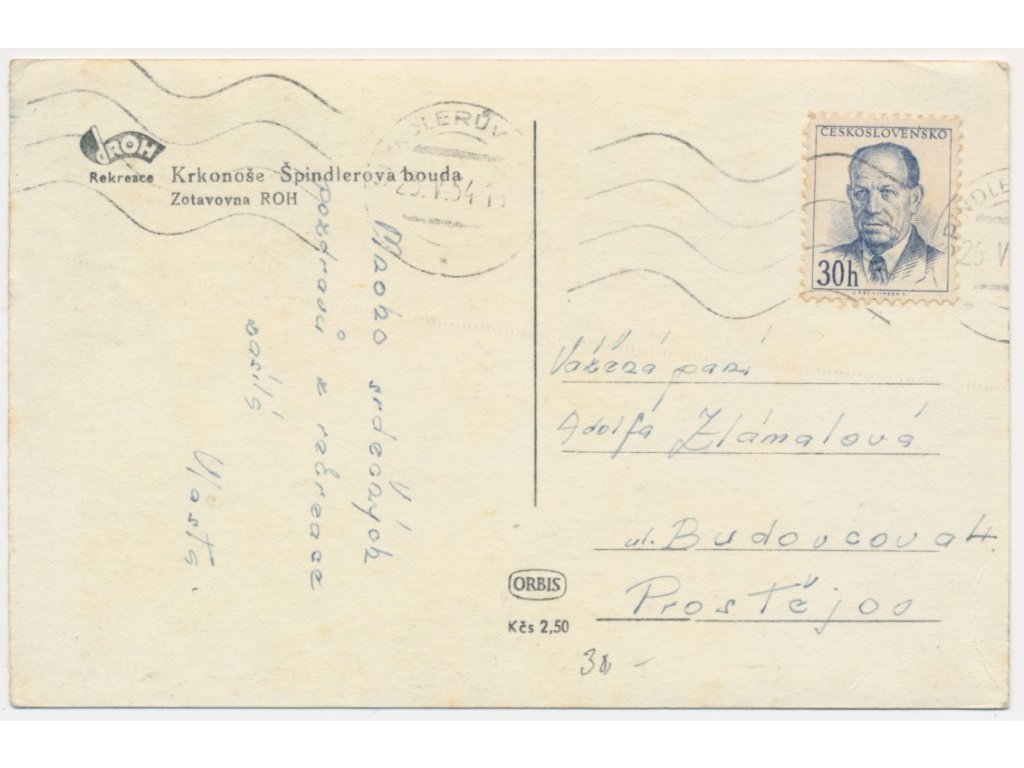 ROH
Rekreace
Krkonoše Špindlerova bouda
Zotavovna ROH
DLERŮV
23.V.54-1
ČESKOSLOVENSKO
30h
PINDLE
Mnoho srdečných
pozdravů z rekreace
zasílá
Vlasta.
Vážená paní
Adolfa Zlámalová
ul. Budovcova 4.
Prostějov
ORBIS
Kčs 2,50